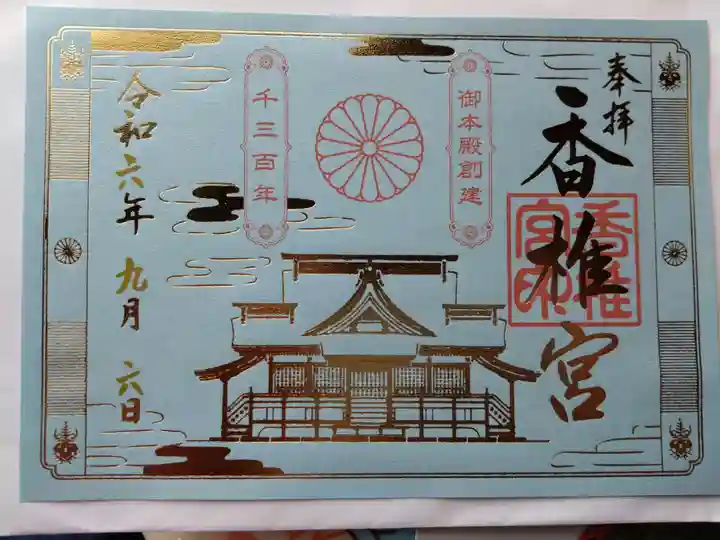 奉拝
香椎宮
香椎宮印
御本殿創建
千三百年
令和六年九月六日